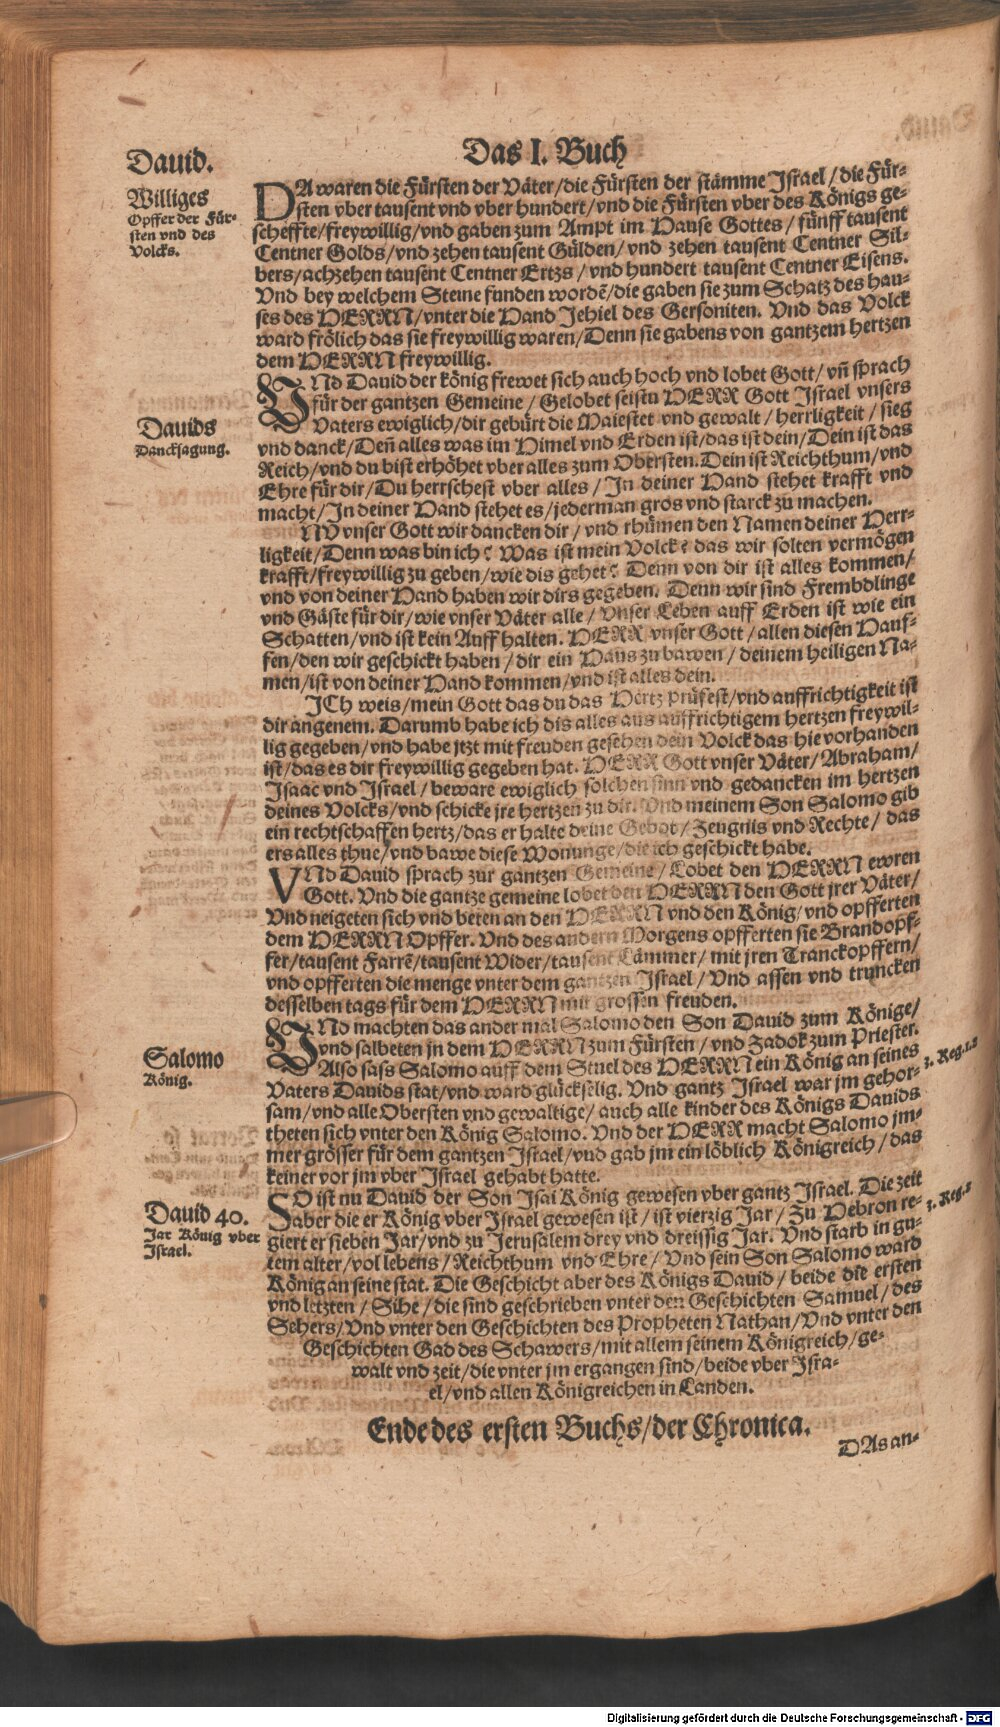 Dauid.
Das I. Buch
Williges
Opffer der Für-
sten vnd des
Volcks.
DA waren die Fürsten der Väter/die Fürsten der stämme Israel/die Für-
sten vber tausent vnd vber hundert/vnd die Fürsten vber des Königs ge-
scheffte/freywillig/vnd gaben zum Ampt im Hause Gottes/fünff tausent
Centner Golds/vnd zehen tausent Gülden/vnd zehen tausent Centner Sil-
bers/achzehen tausent Centner Ertzs/vnd hundert tausent Centner Eisens.
Vnd bey welchem Steine funden wordē/die gaben sie zum Schatz des hau-
ses des HERRN/vnter die Hand Jehiel des Gersoniten. Vnd das Volck
ward frölich das sie freywillig waren/Denn sie gabens von gantzem hertzen
dem HERRN freywillig.
Dauids
Dancksagung.
VNd Dauid der könig frewet sich auch hoch vnd lobet Gott/vñ sprach
für der gantzen Gemeine/Gelobet seistu HERR Gott Israel vnsers
Vaters ewiglich/dir gebürt die Maiestet vnd gewalt/herrligkeit/sieg
vnd danck/Deñ alles was im Himel vnd Erden ist/das ist dein/Dein ist das
Reich/vnd du bist erhöhet vber alles zum Obersten. Dein ist Reichthum/vnd
Ehre für dir/Du herrschest vber alles/In deiner Hand stehet krafft vnd
macht/In deiner Hand stehet es/jederman gros vnd starck zu machen.
NV vnser Gott wir dancken dir/vnd rhümen den Namen deiner Herr-
ligkeit/Denn was bin ich? Was ist mein Volck? das wir solten vermögen
krafft/freywillig zu geben/wie dis gehet? Denn von dir ist alles kommen/
vnd von deiner Hand haben wir dirs gegeben. Denn wir sind Frembdlinge
vnd Gäste für dir/wie vnser Väter alle/Vnser Leben auff Erden ist wie ein
Schatten/vnd ist kein Auffhalten. HERR vnser Gott/allen diesen Hauf-
fen/den wir geschickt haben/dir ein Haus zu bawen/deinem heiligen Na-
men/ist von deiner Hand kommen/vnd ist alles dein.
ICh weis/mein Gott das du das Hertz prüfest/vnd auffrichtigkeit ist
dir angenem. Darumb habe ich dis alles aus auffrichtigem hertzen freywil-
lig gegeben/vnd habe jtzt mit freuden gesehen dein Volck das hie vorhanden
ist/das es dir freywillig gegeben hat. HERR Gott vnser Väter/Abraham/
Isaac vnd Israel/beware ewiglich solchen sinn vnd gedancken im hertzen
deines Volcks/vnd schicke jre hertzen zu dir. Vnd meinem Son Salomo gib
ein rechtschaffen hertz/das er halte deine Gebot/Zeugnis vnd Rechte/das
ers alles thue/vnd bawe diese Wonunge/die ich geschickt habe.
VNd Dauid sprach zur gantzen Gemeine/Lobet den HERRN ewren
Gott. Vnd die gantze gemeine lobet den HERRN den Gott jrer Väter/
Vnd neigeten sich vnd beten an den HERRN vnd den König/vnd opfferten
dem HERRN Opffer. Vnd des andern Morgens opfferten sie Brandopf-
fer/tausent Farrē/tausent Wider/tausent Lämmer/mit jren Tranckopffern/
vnd opfferten die menge vnter dem gantzen Israel/Vnd assen vnd truncken
desselben tags für dem HERRN mit grossen freuden.
Salomo
König.
VNd machten das ander mal Salomo den Son Dauid zum Könige/
vnd salbeten jn dem HERRN zum Fürsten/vnd Zadok zum Priester.
Also sass Salomo auff dem Stuel des HERRN ein König an seines
3. Reg. 1. 2
Vaters Dauids stat/vnd ward glückselig. Vnd gantz Israel war jm gehor-
sam/vnd alle Obersten vnd gewaltige/auch alle kinder des Königs Dauids
theten sich vnter den König Salomo. Vnd der HERR macht Salomo jm-
mer grösser für dem gantzen Israel/vnd gab jm ein löblich Königreich/das
keiner vor jm vber Israel gehabt hatte.
Dauid 40.
Jar König vber
Israel.
SO ist nu Dauid der Son Isai König gewesen vber gantz Israel. Die zeit
aber die er König vber Israel gewesen ist/ist vierzig Jar/Zu Hebron re-
3. Reg. 2
giert er sieben Jar/vnd zu Jerusalem drey vnd dreissig Jar. Vnd starb in gu-
tem alter/vol lebens/Reichthum vnd Ehre/Vnd sein Son Salomo ward
König an seine stat. Die Geschicht aber des Königs Dauid/beide die ersten
vnd letzten/Sihe/die sind geschrieben vnter den Geschichten Samuel/des
Sehers/Vnd vnter den Geschichten des Propheten Nathan/Vnd vnter den
Geschichten Gad des Schawers/mit allem seinem Königreich/ge-
walt vnd zeit/die vnter jm ergangen sind/beide vber Isra-
el/vnd allen Königreichen in Landen.
Ende des ersten Buchs/der Chronica.
DAs an-
Digitalisierung gefördert durch die Deutsche Forschungsgemeinschaft - DFG